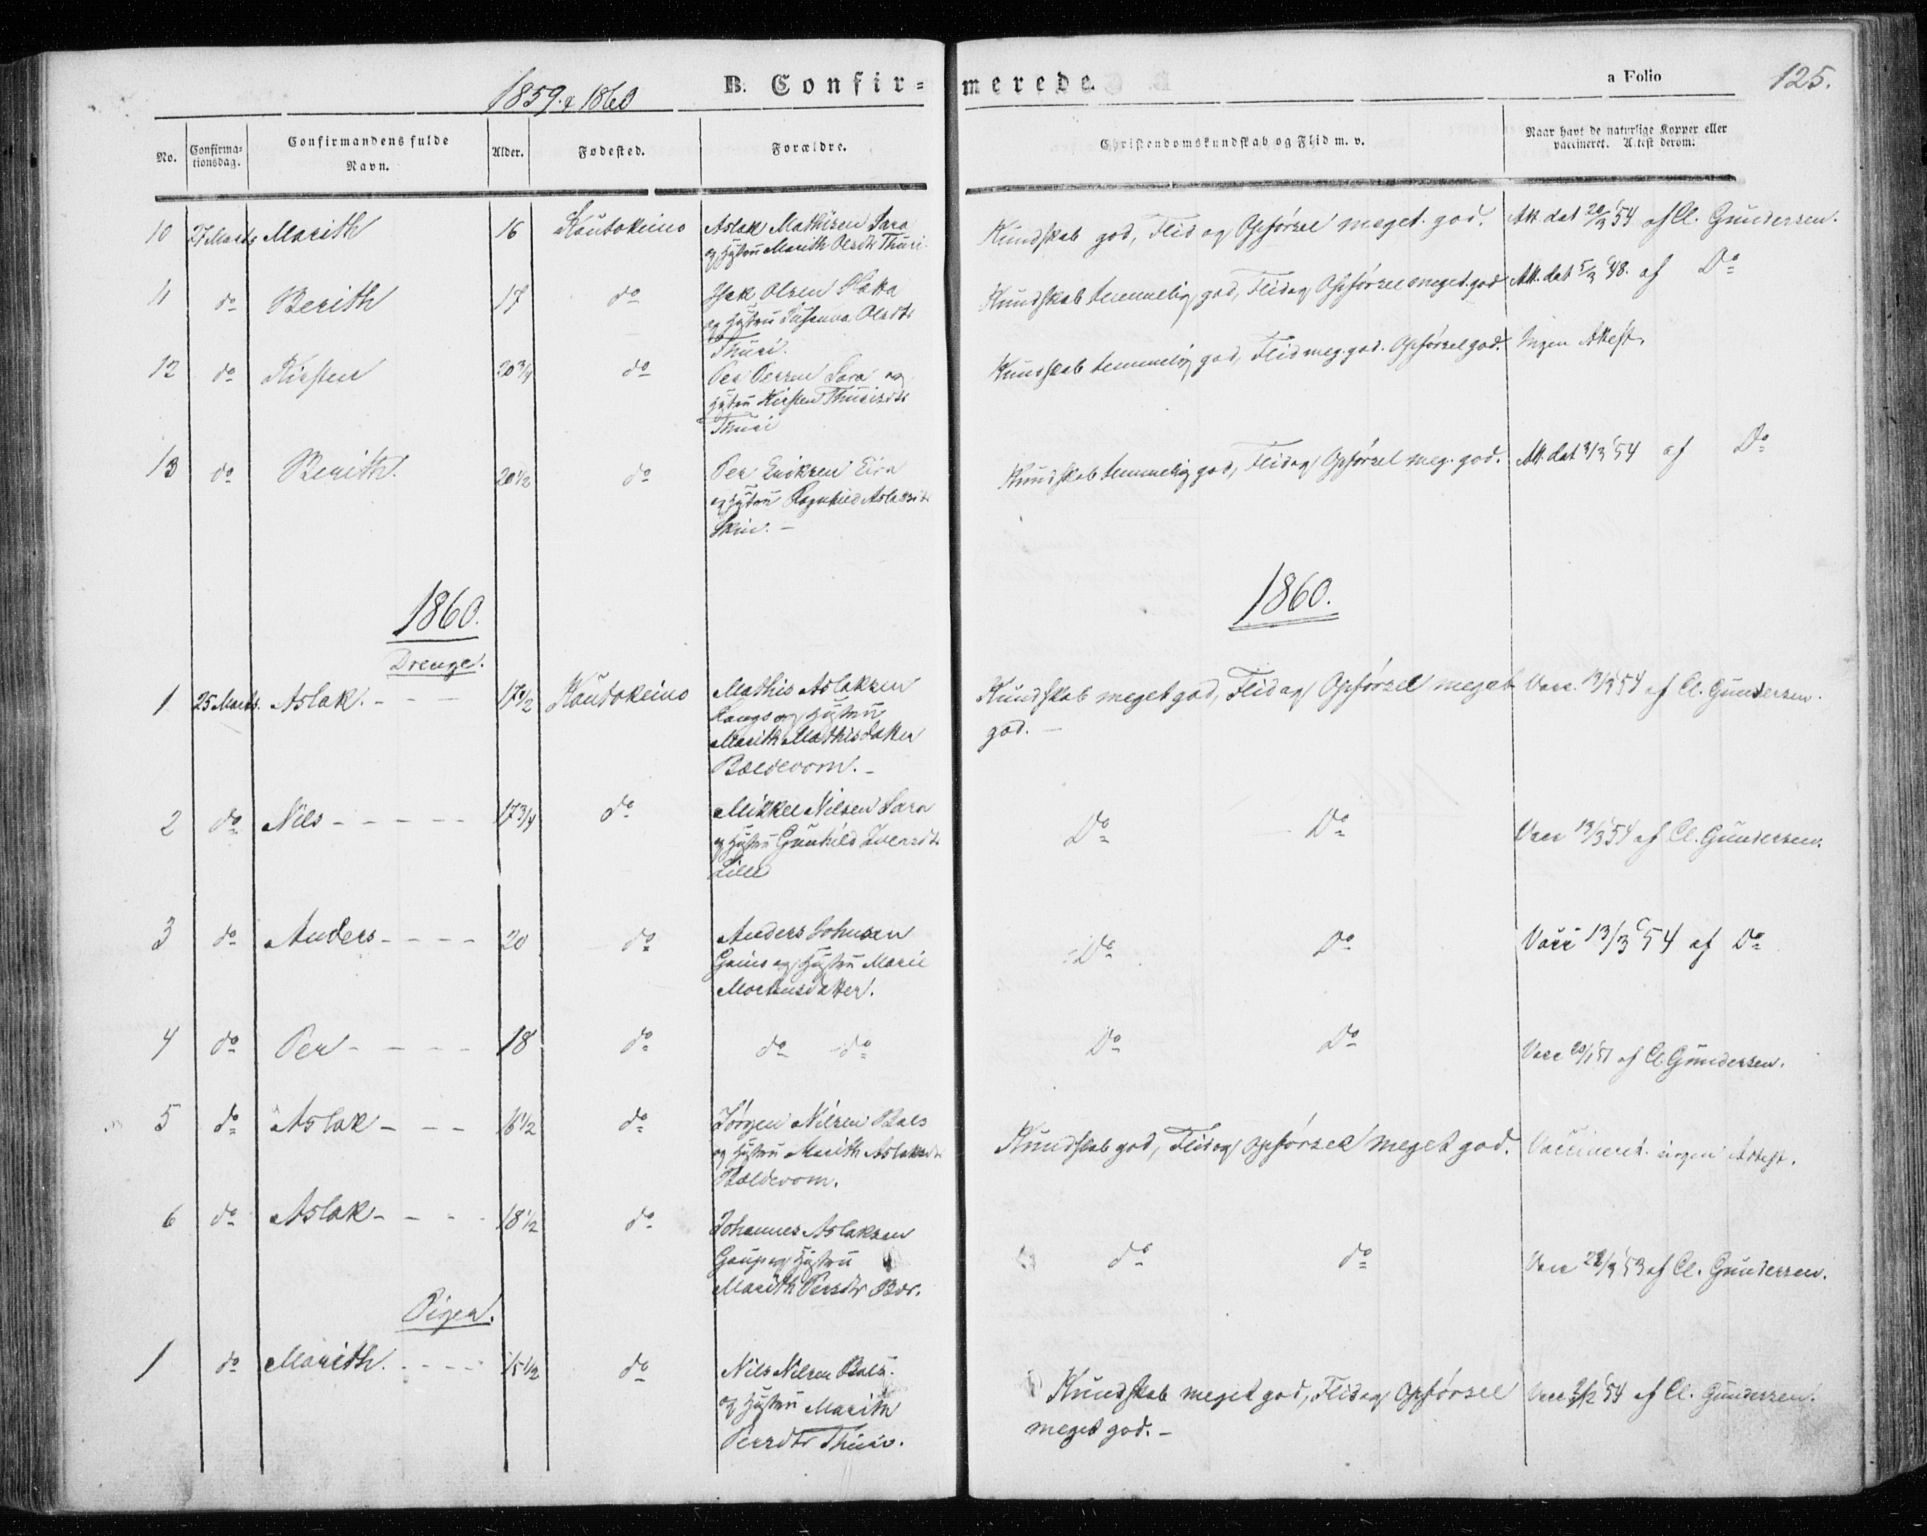 1859 & 1860 B. Confirmerede. a Folio 125.
No. Confirmationsdag. Confirmandens fulde Navn. Alder. Fødested. Forældre. Christendomskundskab og Flid m. v. Naar havt de naturlige Kopper eller vaccineret. Attest derom:
10 27 Marts Marith 16 Kautokeino Aslak Mathisen Sara Kundskab god, Flid og Opførsel meget god. Att. dat 20/2 54 af Cl. Gundersen.
og Hustru Marith Olsdtr Thuri
11 do Berith 17 do Isak Olsen Hætta Kundskab temmelig god, Flid og Opførsel meget god Att. dat 5/3 48. af Do
og Hustru Susanna Olsdtr
Thuri.
12 do Kirsten 20 3/4 do Per Persen Sara og Kundskab temmelig god, Flid meg. god. Opførsel god. Ingen Attest.
Hustru Kirsten Thurisdtr
Thuri
13 do Berith. 20 1/2 do Per Eriksen Eira Kundskab temmelig god, Flid og Opførsel meg. god. Att. dat 3/3 54 af Do
og Hustru Ragnhild Aslaksdtr
1860. 1860.
Drenge.
1 25 Marts. Aslak. 17 1/2 Kautokeino Mathis Aslaksen Kundskab meget god, Flid og Opførsel meget Vacc. 13/3 54 af Cl. Gundersen.
og Hustru god. —
Marith Mathisdatter
Bældevom. —
2 do Nils 17 3/4 do Mikkel Nilsen Sara Do Do Vacc 13/3 54 af Cl. Gundersen.
og Hustru Gunhild Iversdtr
3 do Anders 20 do Anders Johnsen Do Do Vacc 13/3 54 af Do
Gaino og Hustru Marie
Mortensdatter.
4 do Per 18 do do do Do Do Vacc 20/1 51 af Cl. Gundersen.
5 do Aslak 16 1/2 do Jørgen Nilsen Bals Kundskab god, Flid og Opførsel meget god. Vaccineret ingen Attest.
og Hustru Marith Aslaksdtr
Bældevom.
6 do Aslak 18 1/2 do Johannes Aslaksen do do Vacc 28/3 53 af Cl. Gundersen.
Gaup og Hustru
Marith Persdtr Bær.
Piger.
1 do Marith. 15 1/2 do Nils Nilsen Bals. Kundskab meget god, Flid og Opførsel Vacc 54 af Cl. Gundersen.
og Hustru Marith meget god. —
Persdtr Thuri.